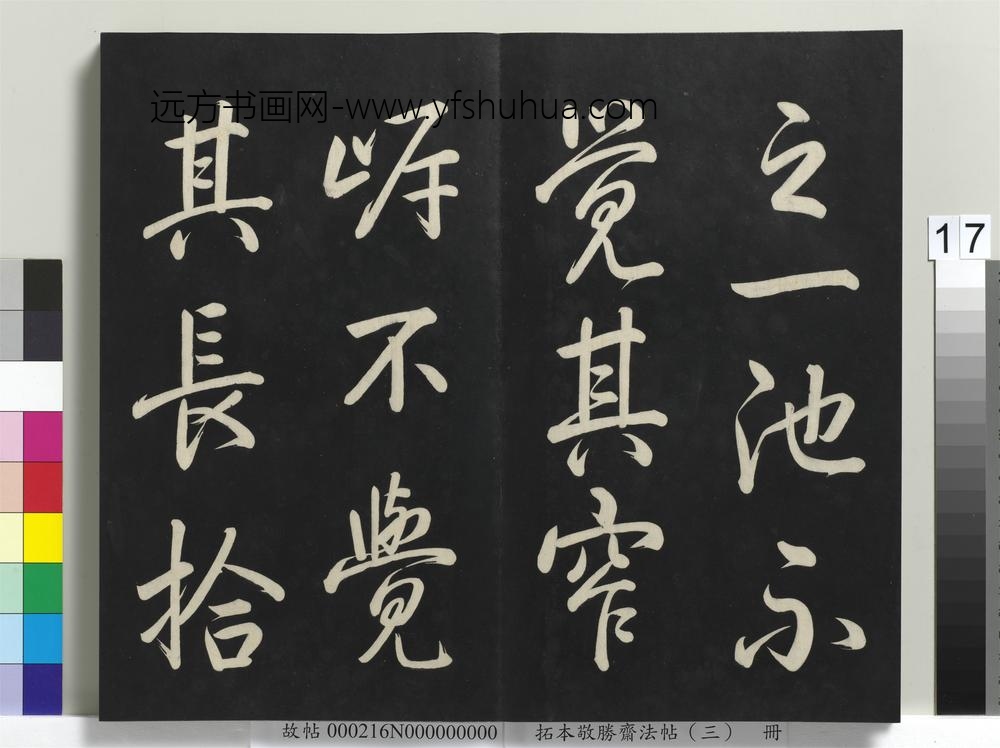 之一池不
覺其窄
不覺
其長拾
远方书画网-www.yfshuhua.com
17
故帖 000216N000000000 拓本敬勝齋法帖（三） 冊